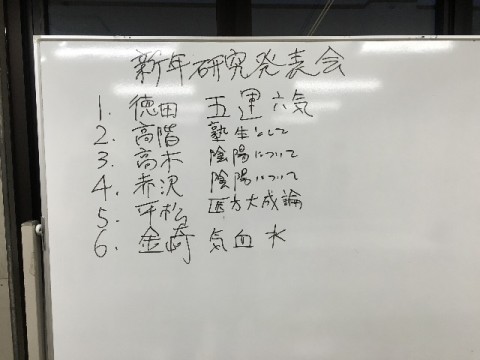 新年研究発表会
1. 徳田 五運六気
2. 高階 塾生として
3. 高木 陰陽について
4. 赤沢 陰陽について
5. 平松 医方大成論
6. 金崎 気血水